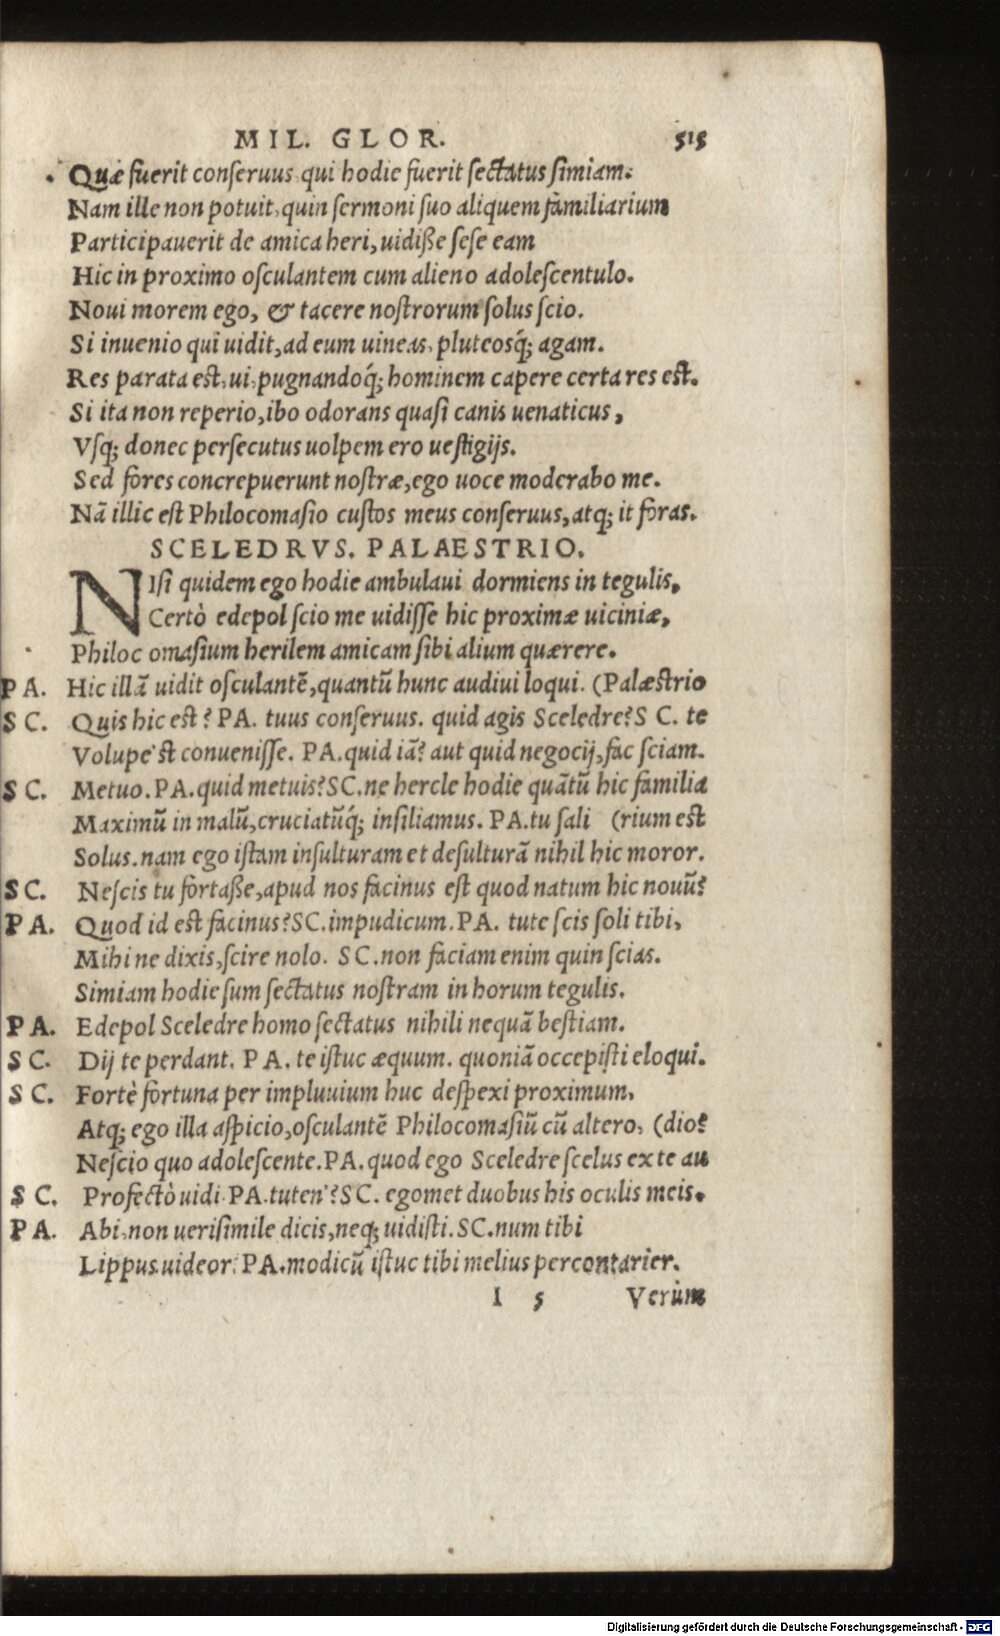 MIL. GLOR. 515
Quæ fuerit conſeruus qui hodie fuerit ſectatus ſimiam:
Nam ille non potuit, quin ſermoni ſuo aliquem familiarium
Participauerit de amica heri, uidiße ſeſe eam
Hic in proximo oſculantem cum alieno adoleſcentulo.
Noui morem ego, & tacere noſtrorum ſolus ſcio.
Si inuenio qui uidit, ad eum uineas, pluteosq́; agam.
Res parata eſt, ui, pugnandoq́; hominem capere certa res eſt.
Si ita non reperio, ibo odorans quaſi canis uenaticus,
Vſq; donec perſecutus uolpem ero ueſtigijs.
Sed fores concrepuerunt noſtræ, ego uoce moderabo me.
Nā illic eſt Philocomaſio cuſtos meus conſeruus, atq; it foras.
SCELEDRVS. PALAESTRIO.
NIſi quidem ego hodie ambulaui dormiens in tegulis,
Certò edepol ſcio me uidiſſe hic proximæ uiciniæ,
Philoc omaſium herilem amicam ſibi alium quærere.
PA. Hic illā uidit oſculantē, quantū hunc audiui loqui. (Palæſtrio
SC. Quis hic eſt? PA. tuus conſeruus. quid agis Sceledre? SC. te
Volupe'ſt conueniſſe. PA. quid iā? aut quid negocij, fac ſciam.
SC. Metuo. PA. quid metuis? SC. ne hercle hodie quātū hic familia
Maximū in malū, cruciatūq́; inſiliamus. PA. tu ſali (rium eſt
Solus. nam ego iſtam inſulturam et deſulturā nihil hic moror.
SC. Neſcis tu fortaße, apud nos facinus eſt quod natum hic nouū?
PA. Quod id eſt facinus? SC. impudicum. PA. tute ſcis ſoli tibi,
Mihi ne dixis, ſcire nolo. SC. non faciam enim quin ſcias.
Simiam hodie ſum ſectatus noſtram in horum tegulis.
PA. Edepol Sceledre homo ſectatus nihili nequā beſtiam.
SC. Dij te perdant. PA. te iſtuc æquum. quoniā occepiſti eloqui.
SC. Fortè fortuna per impluuium huc deſpexi proximum,
Atq; ego illa aſpicio, oſculantē Philocomaſiū cū altero, (dio?
Neſcio quo adoleſcente. PA. quod ego Sceledre ſcelus ex te au
SC. Profectò uidi. PA. tuten'? SC. egomet duobus his oculis meis.
PA. Abi, non ueriſimile dicis, neq; uidiſti. SC. num tibi
Lippus uideor? PA. modicū iſtuc tibi melius percontarier.
I 5 Verùm
Digitalisierung gefördert durch die Deutsche Forschungsgemeinschaft - DFG